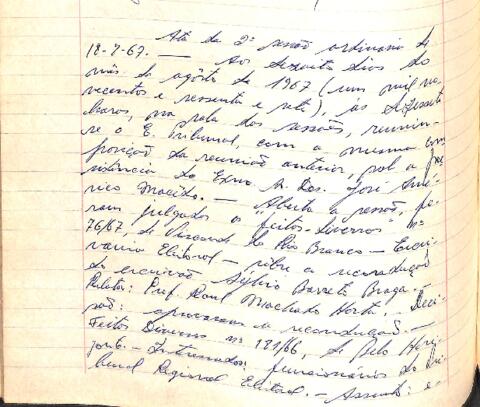 Ata da 2ª sessão ordinária de
18-8-67. — Aos dezoito dias do
mês de agôsto de 1967 (um mil no-
vecentos e sessenta e sete), às
horas, na sala das sessões, reuniu-
se o E. Tribunal, com a mesma com
posição da reunião anterior, sob a pre
sidência do Exmo. Sr. Des. José Amé-
rico Macêdo. — Aberta a sessão, fo-
ram julgados os feitos diversos nº
76/67, de Visconde do Rio Branco — Escri-
vania Eleitoral — sôbre a recondução
do escrivão Sylvio Barreto Braga.
Relator: Prof. Raul Machado Horta. — Deci-
são: aprovaram a recondução. —
Feitos Diversos nº 181/66, de Belo Hori-
zonte. — Interessados: funcionários do Tri-
bunal Regional Eleitoral. — Assunto: e